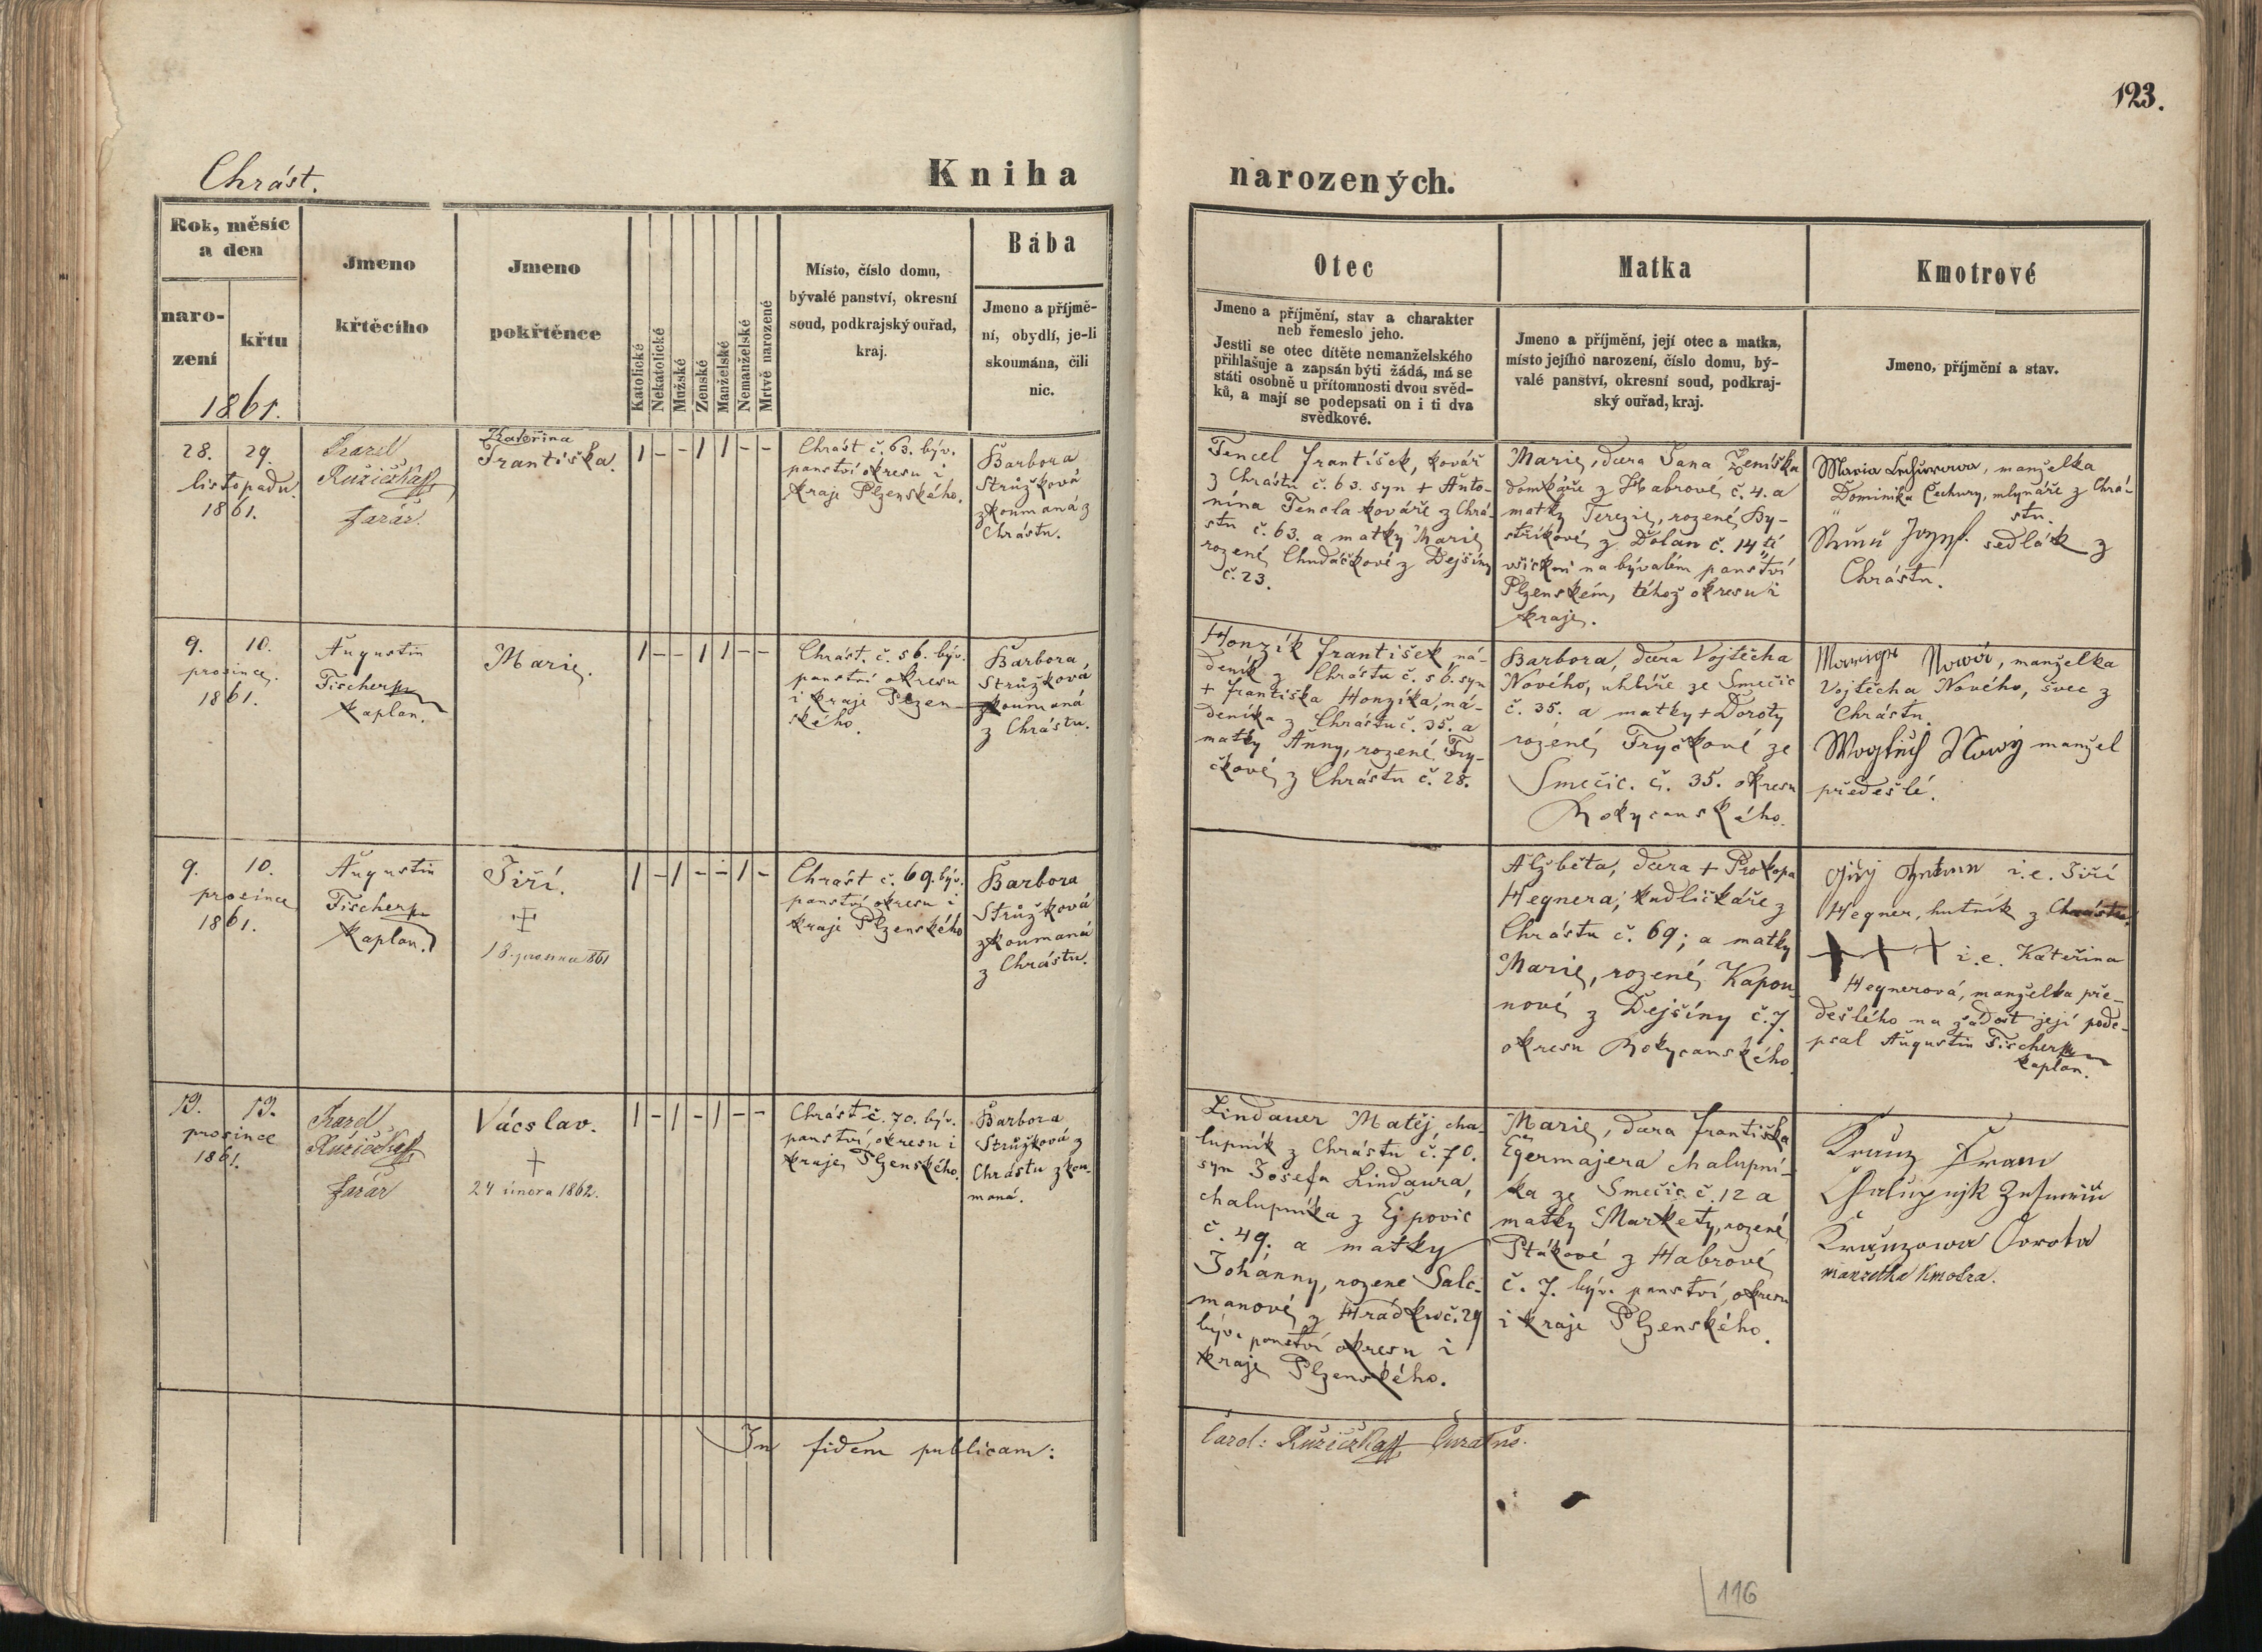 123.
Chrást.
Kniha narozených.
Rok, měsíc
a den
naro-
zení
křtu
1861.
Jmeno
křtěcího
Jmeno
pokřtěnce
Katolické
Nekatolické
Mužské
Ženské
Manželské
Nemanželské
Mrtvě narozené
Místo, číslo domu,
bývalé panství, okresní
soud, podkrajský ouřad,
kraj.
Bába
Jmeno a příjmě-
ní, obydlí, je-li
skoumána, čili
nic.
Otec
Jmeno a příjmění, stav a charakter
neb řemeslo jeho.
Jestli se otec dítěte nemanželského
přihlašuje a zapsán býti žádá, má se
státi osobně u přítomnosti dvou svěd-
ků, a mají se podepsati on i ti dva
svědkové.
Matka
Jmeno a příjmění, její otec a matka,
místo jejího narození, číslo domu, bý-
valé panství, okresní soud, podkraj-
ský ouřad, kraj.
Kmotrové
Jmeno, příjmění a stav.
28. 29.
listopadu
1861.
Karel
Růžička
farář.
Kateřina
Františka.
1 - - 1 1 - -
Chrást č. 63. býv.
panství okresu i
kraje Plzenského.
Barbora
Strůžková
zkoumaná z
Chrástu.
Tencl František, kovář
z Chrástu č. 63. syn + Anto-
nína Tencla kováře z Chrá-
stu č. 63. a matky Marie
rozené Chudáčkové z Dejšiny
č. 23.
Marie, dcera Jana Ženíška
domkáře z Habrové č. 4. a
matky Terezie, rozené By-
stříkové z Dolan č. 14 ti
všickni na bývalém panství
Plzenském, téhož okresu i
kraje.
Maria, manželka
Dominika Čechury, mlynáře z Chrá-
stu.
Josef sedlák z
Chrástu.
9. 10.
prosince
1861.
Augustin
Fischer
kaplan.
Marie.
1 - - 1 1 - -
Chrást. č. 56. býv.
panství okresu
i kraje Plzen
ského.
Barbora
Strůžková
zkoumaná
z Chrástu.
Honzík František ná-
deník z Chrástu č. 56. syn
+ Františka Honzíka, ná-
deníka z Chrástu č. 35. a
matky Anny, rozené Fry-
čkové z Chrástu č. 28.
Barbora, dcera Vojtěcha
Nového, uhlíře ze Smečic
č. 35. a matky + Doroty
rozené Fryčkové ze
Smečic. č. 35. okresu
Rokycanského.
Nowá, manželka
Vojtěcha Nového, švec z
Chrástu.
Nowý manžel
předešlé.
9. 10.
prosince
1861.
Augustin
Fischer
kaplan.
Jiří.
18. prosince 861
1 - 1 - - 1 -
Chrast č. 69. býv.
panství okresu i
kraje Plzenského
Barbora
Strůžková
zkoumaná
z Chrástu.
Alžběta, dcera + Prokopa
Hegnera, kudličkáře z
Chrástu č. 69; a matky
Marie, rozené Kapou-
nové z Dejšiny č. 7.
okresu Rokycanského.
i.e. Jiří
Hegner, hutník z Chrástu.
+ + + i.e. Kateřina
Hegnerová, manželka pře-
dešlého na žádost její pode-
psal Augustin Fischer
kaplan.
13. 13.
prosince
1861.
Karel
Růžička
farář
Václav.
+
24 února 1862.
1 - 1 - 1 - -
Chrást č. 70. býv.
panství, okresu i
kraje Plzenského.
Barbora
Strůžková z
Chrástu zkou-
maná.
Lindauer Matěj cha
lupník z Chrástu č. 70.
syn Josefa Lindaura,
chalupníka z Ejpovic
č. 49; a matky
Johanny, rozene Salc-
manové z Hrádku č. 29
býv. panství okresu i
kraje Plzenského.
Marie, dcera Františka
Egermajera chalupní-
ka ze Smečic č. 12 a
matky Markety, rozené
Ptákové z Habrové
č. 7. býv. panství, okresu
i kraje Plzenského.
Kranz
Chalupnjk
Kranzowa Dorota
manželka kmotra.
In fidem publicam:
Carol: Růžiczka Curatus.
116